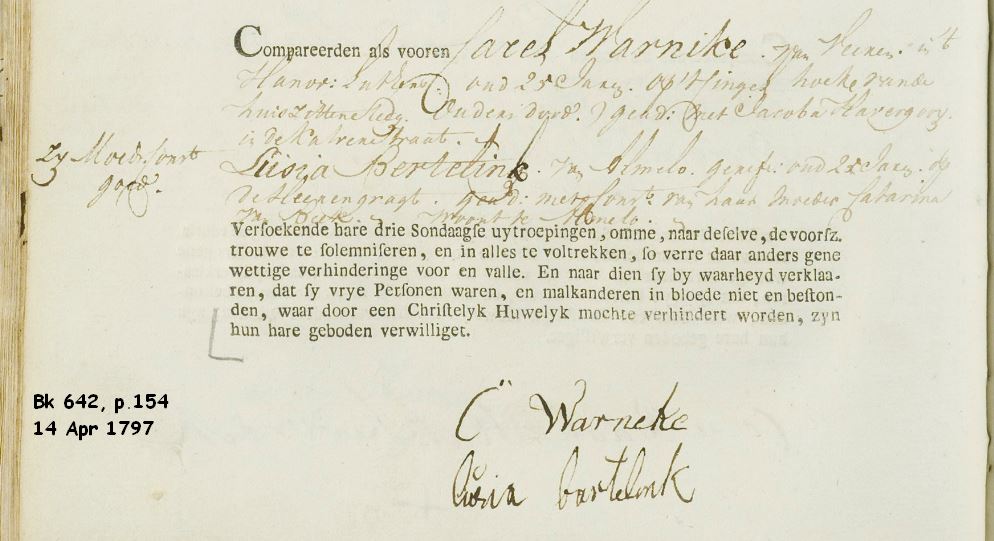 Compareerden als vooren Carel Warnike. van Veenen. in 't
Hanov: Luthers. oud 25 Jaar. op 't Singel hoek van de
huiszittensteeg. Ouders dood. geads: met Jacoba
in de Kalverstraat.
Zy Moeders consent
goed.
Lusia Bertelink. van Almelo. geref: oud 25 Jaar. op
de Heerengragt. geads: met consent van haar moeder Catarina
van woont te Almelo.
Versoekende hare drie Sondaagse uytroepingen, omme, naar deselve, de voorsz.
trouwe te solemniseren, en in alles te voltrekken, so verre daar anders gene
wettige verhinderinge voor en valle. En naar dien sy by waarheyd verklaa-
ren, dat sy vrye Personen waren, en malkanderen in bloede niet en beston-
den, waar door een Christelyk Huwelyk mochte verhindert worden, zyn
hun hare geboden verwilliget.
Bk 642, p.154
14 Apr 1797
C Warneke
lusia bartelink